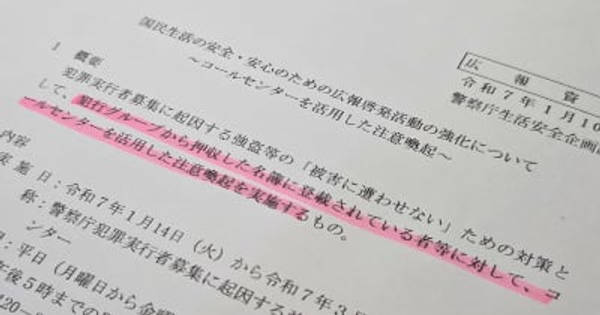 広報資
令和7年1月10
警察庁生活安全企画
国民生活の安全・安心のための広報啓発活動の強化について
～コールセンターを活用した注意喚起～
1 概要
犯罪実行者募集に起因する強盗等の「被害に遭わせない」ための対策と
して、犯行グループから押収した名簿に登載されている者等に対して、コ
ールセンターを活用した注意喚起を実施するもの。
内容
実施日：令和7年1月14日（火）から令和7年3月
称：警察庁犯罪実行者募集に起因する
ンター
日：平日（月曜日から金曜
午後5時までの